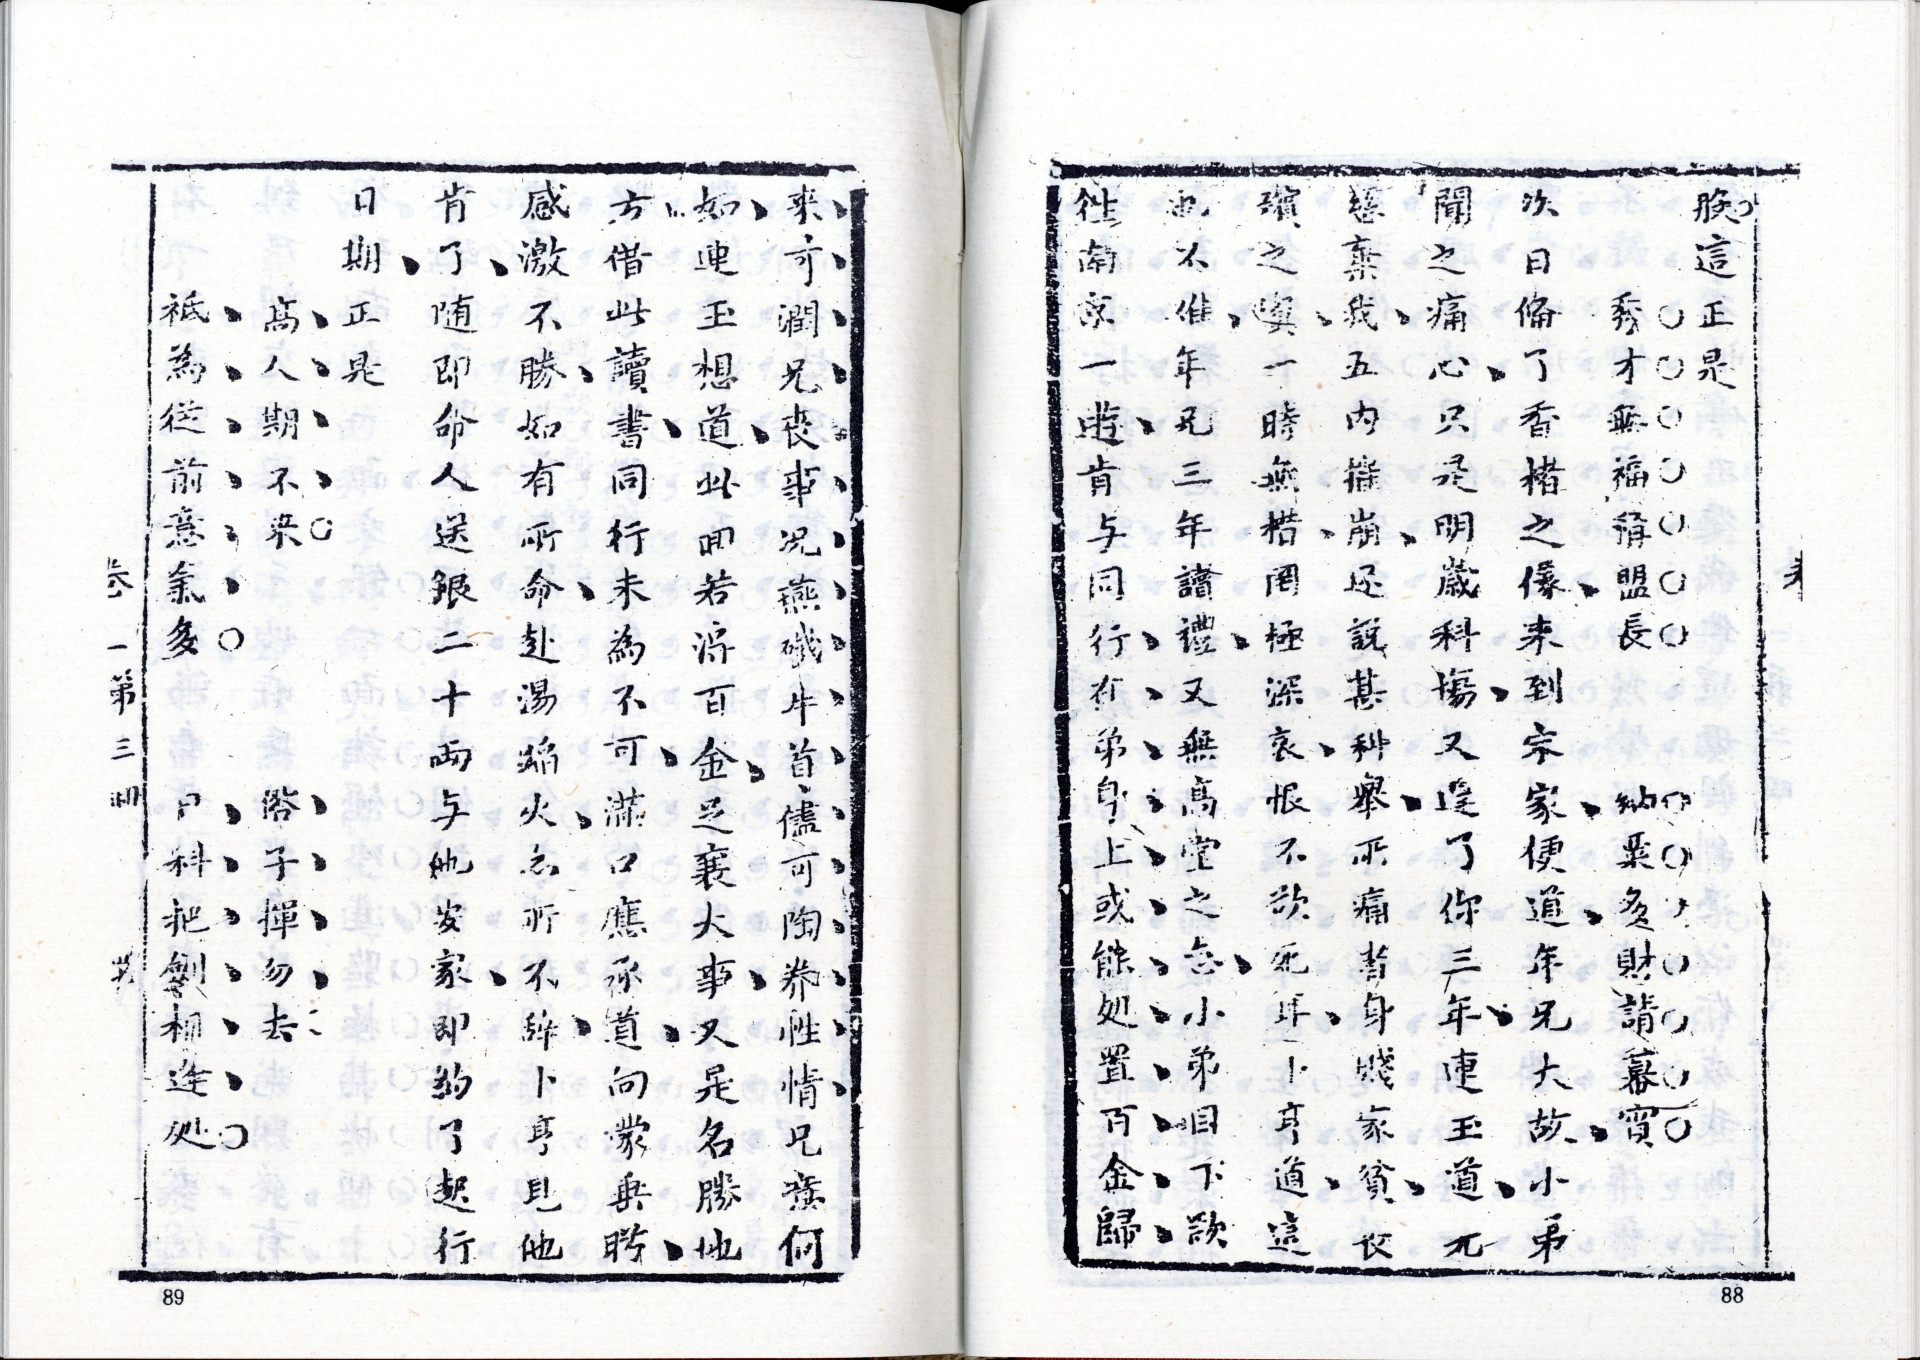 朕這正是
秀才無福猾盟長　納粟多財請幕賓
次日俻了香楮之儀来到宗家便道年兄大故小弟
聞之痛心只是明歲科塲又逢了你三年連玉道兀
慈棄我五内摧崩还說甚科舉所痛者身賤家貧丧
殯之奠一時無措罔極深哀恨不欲死耳卜亨道這
也不难年兄三年讀禮又無高堂之念小弟目下欲
徃南京一遊肯与同行在弟身上或能処置百金歸
来可潤兄丧事况燕磯牛首儘可陶养性情兄意何
如連玉想道此囬若淂百金足襄大事又是名勝地
方借此讀書同行未為不可滿口應承道向蒙垂盻
感激不勝如有所命赴湯蹈火亦所不辞卜亨見他
肯了随即命人送銀二十两与他安家即約了起行
日期正是
高人期不来　俗子揮勿去
祗為從前意氣多　戶科把劍相逢処
卷一第三囬
88
89